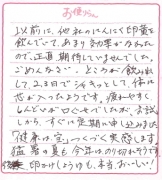 お便りから
以前に、他社のにんにく卵黄を
飲んでいて、あまり効果がなかったの
で、正直期待していませんでした。
ごめんなさい。ところが飲み始め
て、2、3日でシャキッとして、体に
芯が入ったようです。疲れやすく
しんどいのがなくなったのが、お試し
から、すぐに定期に申し込みました。
「健康は宝」つくづく実感します。
猛暑の夏も今年はのり切れそうです
卵かけしょうゆも、本当、おいしい!